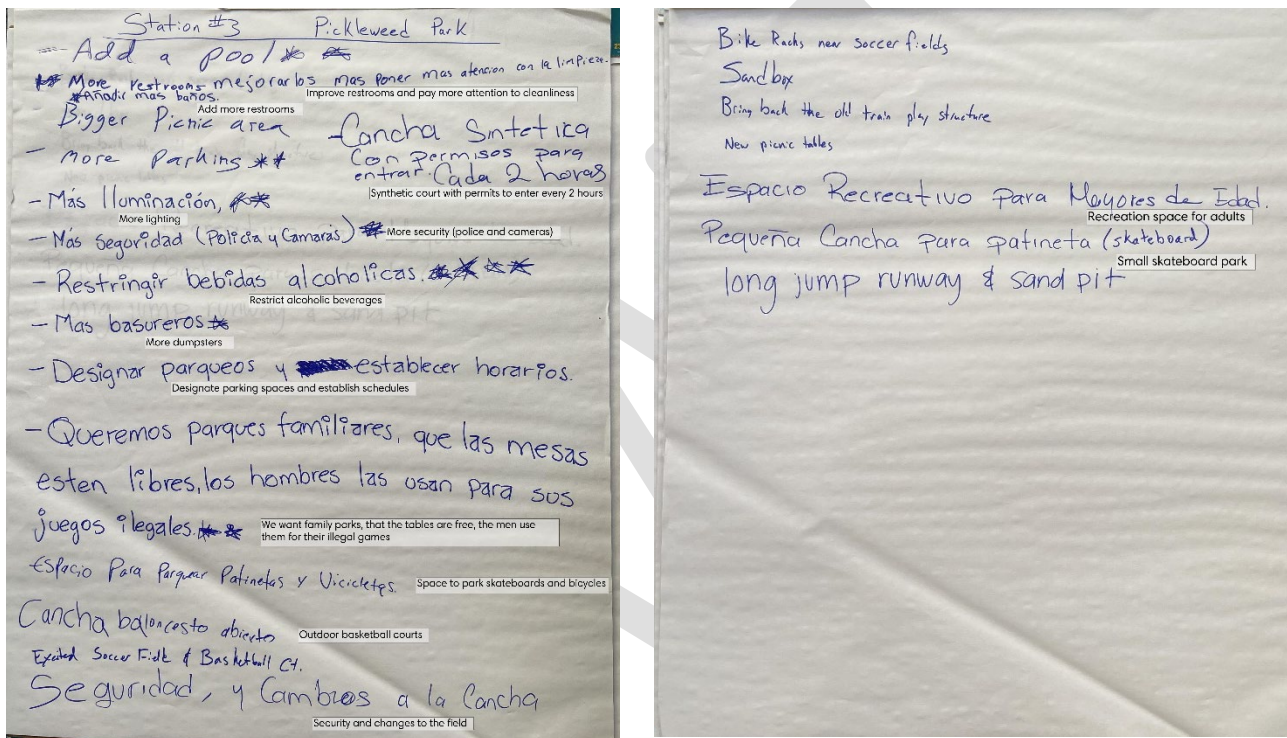 Station #3 Pickleweed Park
- Add a pool
More restrooms mejorarlos mas poner mas atencion con la limpieze.
Improve restrooms and pay more attention to cleanliness
*Añadir mas baños.
Add more restrooms
Bigger Picnic area
- More Parking **
- Cancha Sintetica
Con permisos para
entrar. Cada 2 horas
Synthetic court with permits to enter every 2 hours
- Más Iluminación, **
More lighting
- Más Seguridad (Policia y Camaras) *
More security (police and cameras)
- Restringir bebidas alcoholicas. ****
Restrict alcoholic beverages
- Mas basureros *
More dumpsters
- Designar parqueos y establecer horarios.
Designate parking spaces and establish schedules
- Queremos parques familiares, que las mesas
esten libres, los hombres las usan para sus
juegos ilegales. **
We want family parks, that the tables are free, the men use
them for their illegal games
Espacio Para Parquear Patinetas y Vicicletas.
Space to park skateboards and bicycles
Cancha baloncesto abierto
Outdoor basketball courts
Excited Soccer Field & Basketball Ct.
Seguridad, y Cambios a la Cancha
Security and changes to the field
Bike Racks new soccer fields
Sandbox
Bring back the old train play structure
New picnic tables
Espacio Recreativo Para Mayores de Edad.
Recreation space for adults
Pequeña Cancha para patineta (skateboard)
Small skateboard park
long jump runway & sand pit